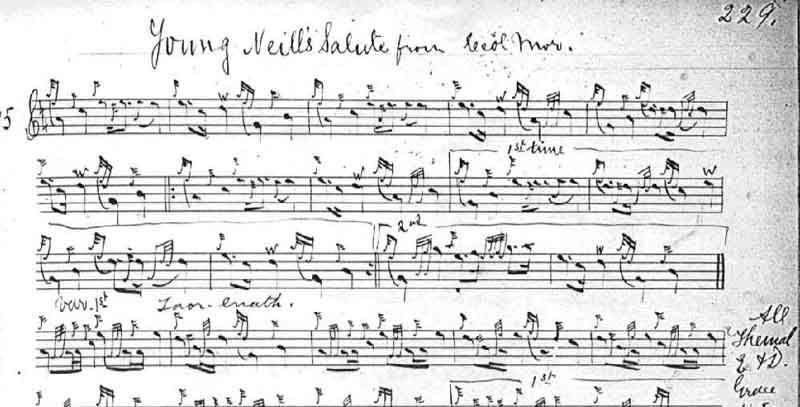 229.
Young Neill's Salute from Ceòl Mor.
5
1st time
2nd
Var. 1st Taor-luath.
All
Themal
E & D.
Grace
1st